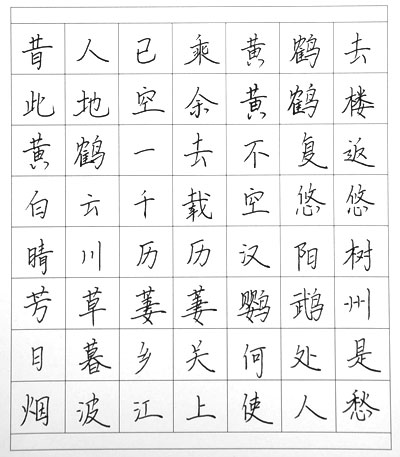 昔人已乘黄鹤去
此地空余黄鹤楼
黄鹤一去不复返
白云千载空悠悠
晴川历历汉阳树
芳草萋萋鹦鹉州
日暮乡关何处是
烟波江上使人愁